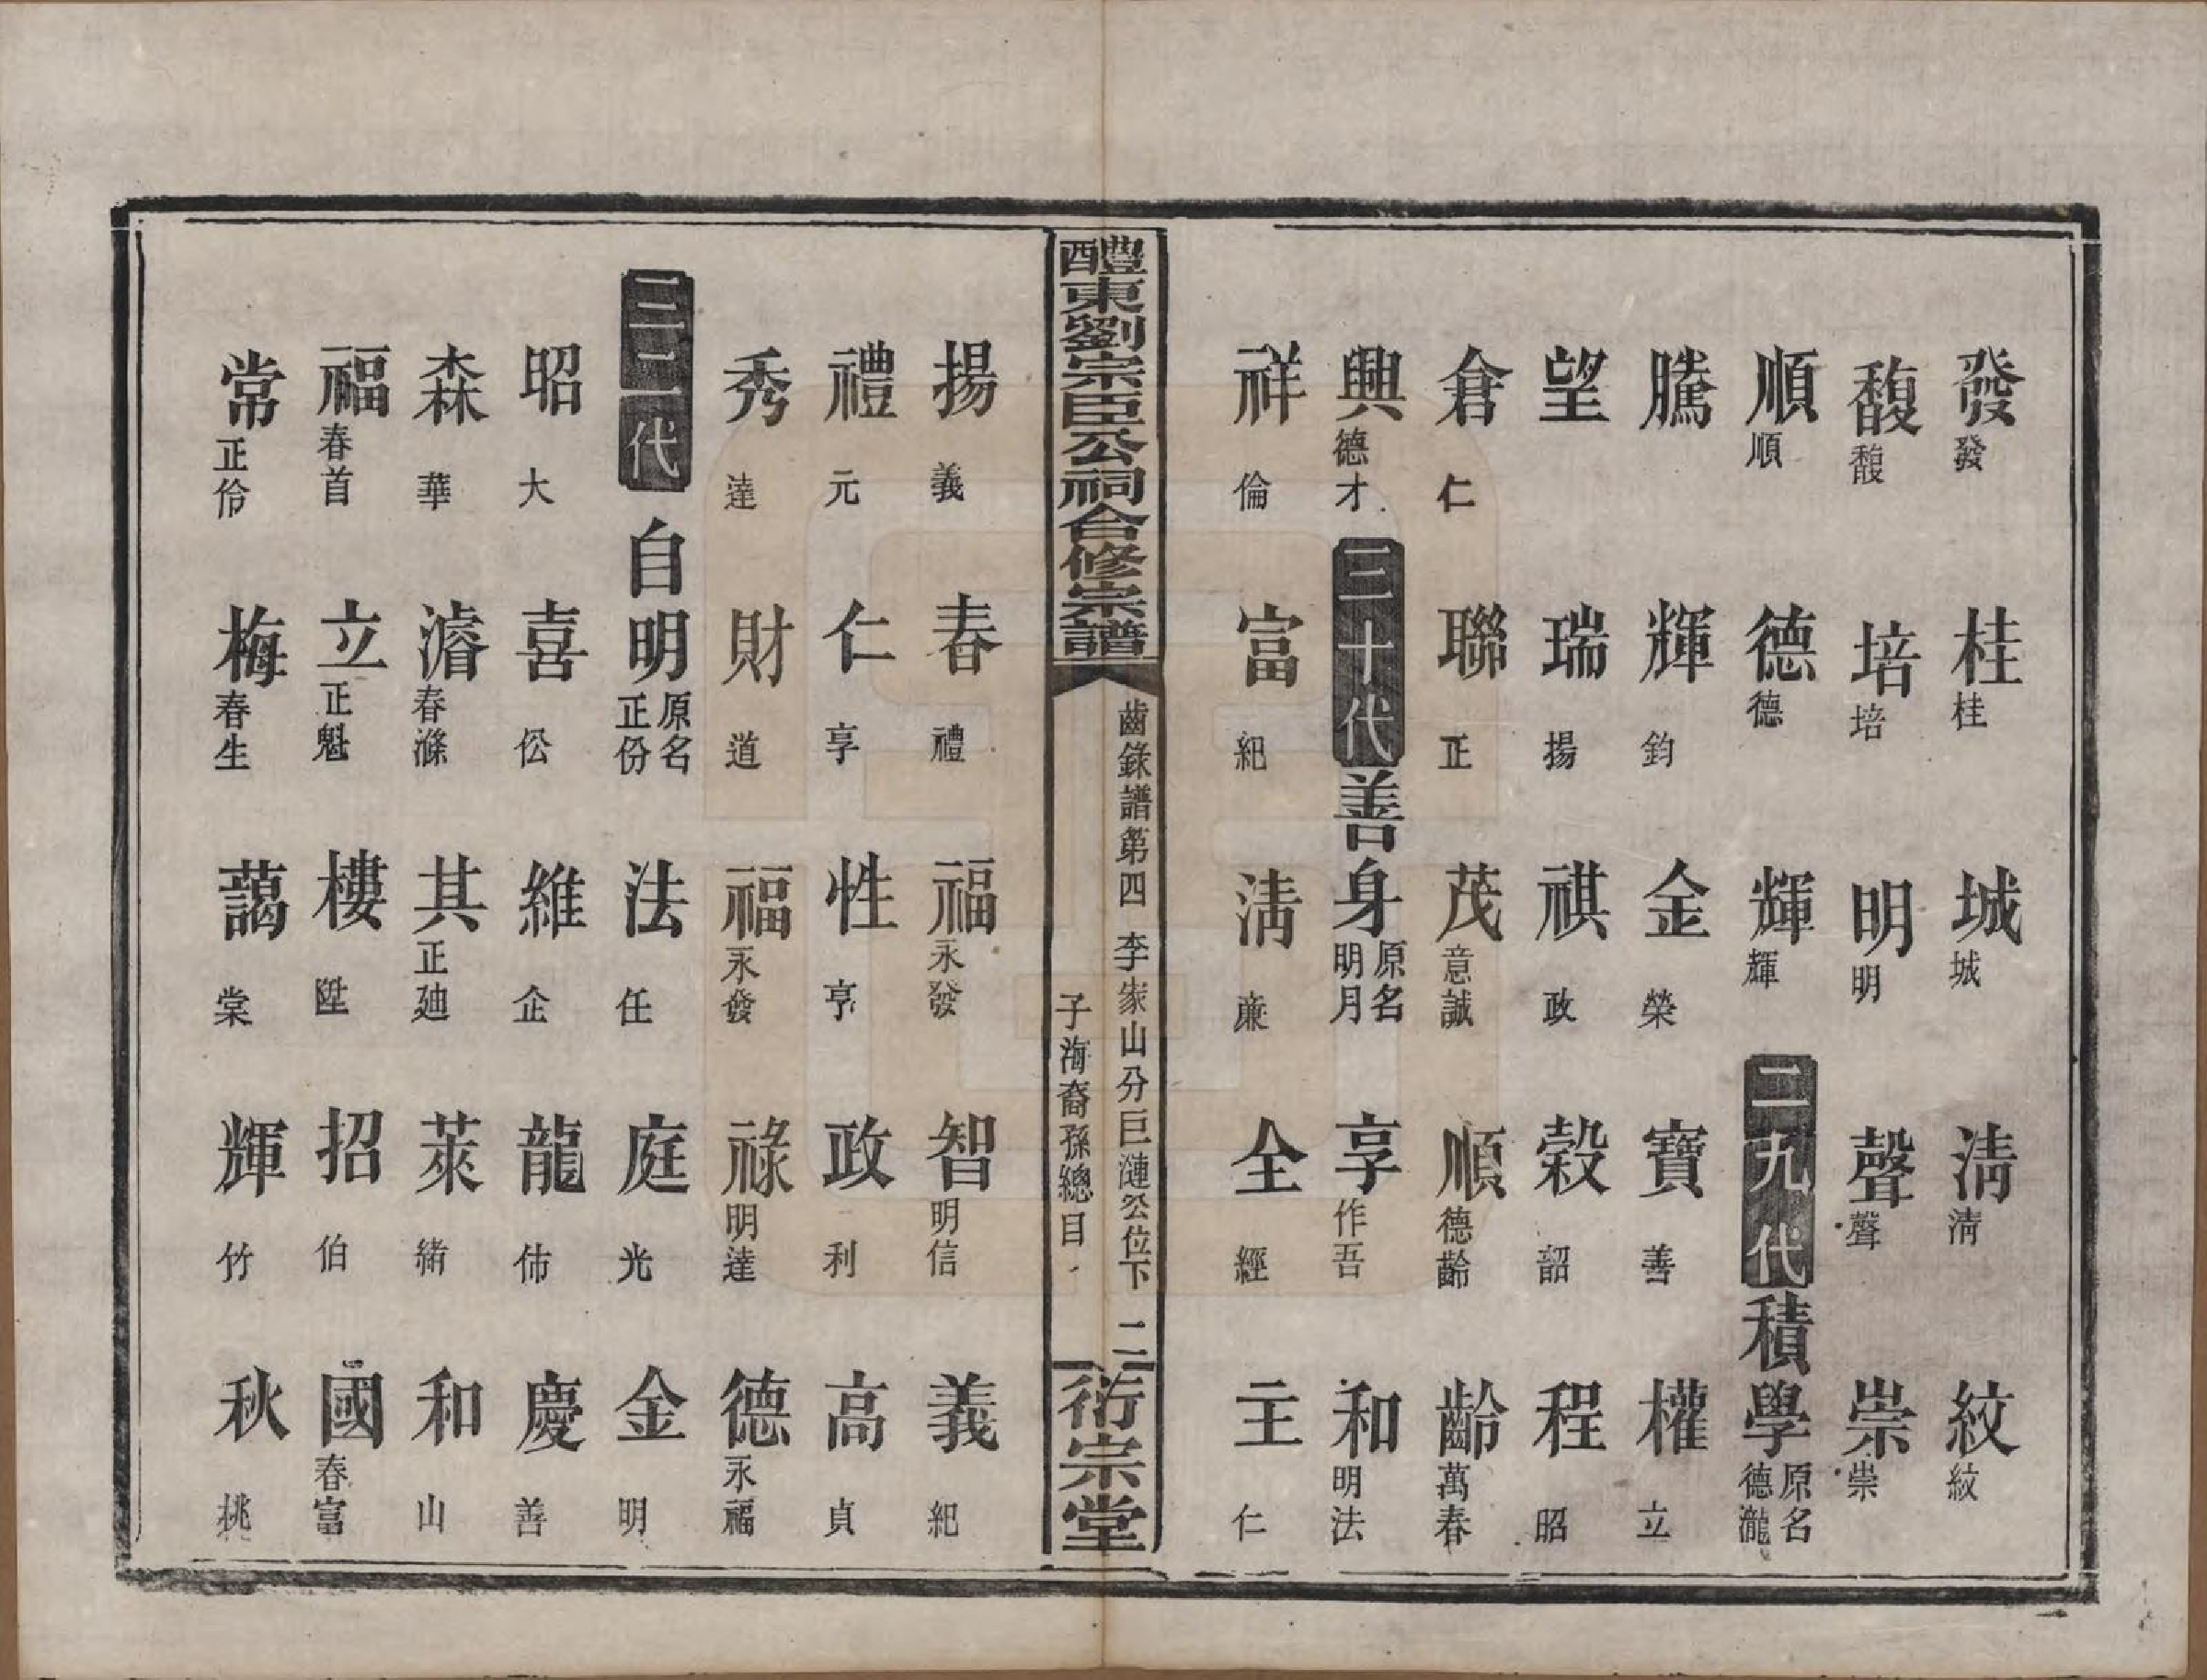 發發 桂桂 城城 淸淸 紋紋
馥馥 培培 明明 聲聲 崇崇
順順 德德 輝輝 二九代 積學原名德瀧
騰 輝鈞 金榮 寶善 權立
望 瑞揚 祺政 穀韶 程昭
倉仁 聯正 茂意誠 順德齡 齡萬春
興德才 三十代 善身原名明月 享作吾 和明法
祥倫 富紀 淸廉 全經 主仁
醴東劉宗臣公祠合修宗譜
齒錄譜第四 李家山分巨漣公位下 二
子海裔孫總目
衍宗堂
揚義 春禮 福永發 智明信 義紀
禮元 仁享 性亨 政利 高貞
秀達 財道 福永發 祿明達 德永福
三二代 自明原名正份 法任 庭光 金明
昭大 喜伀 維企 龍伂 慶善
森華 濬春滌 其正廸 萊緒 和山
福春首 立正魁 樓陞 招伯 國春富
常正伶 梅春生 藹棠 輝竹 秋挑